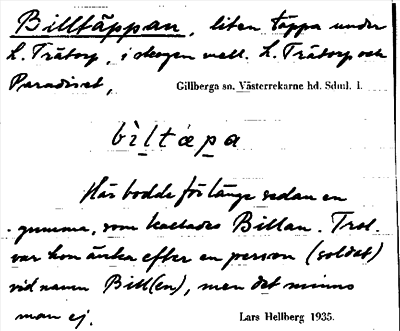 Billtäppan, liten täppa under
L. Trätorp, i skogen mell. L. Trätorp och
Paradiset,
Gillberga sn. Västerrekarne hd. Sdml. 1.
bìltæpa
Här bodde för länge sedan en
gumma, som kallades Billan. Trol.
var hon änka efter en person (soldat)
vid namn Bill(en), men det minns
man ej.
Lars Hellberg 1935.